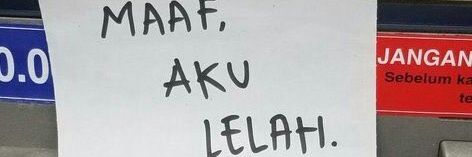 MAAF,
AKU
LELAH.
0.0
JANGAN
Sebelum ka
te